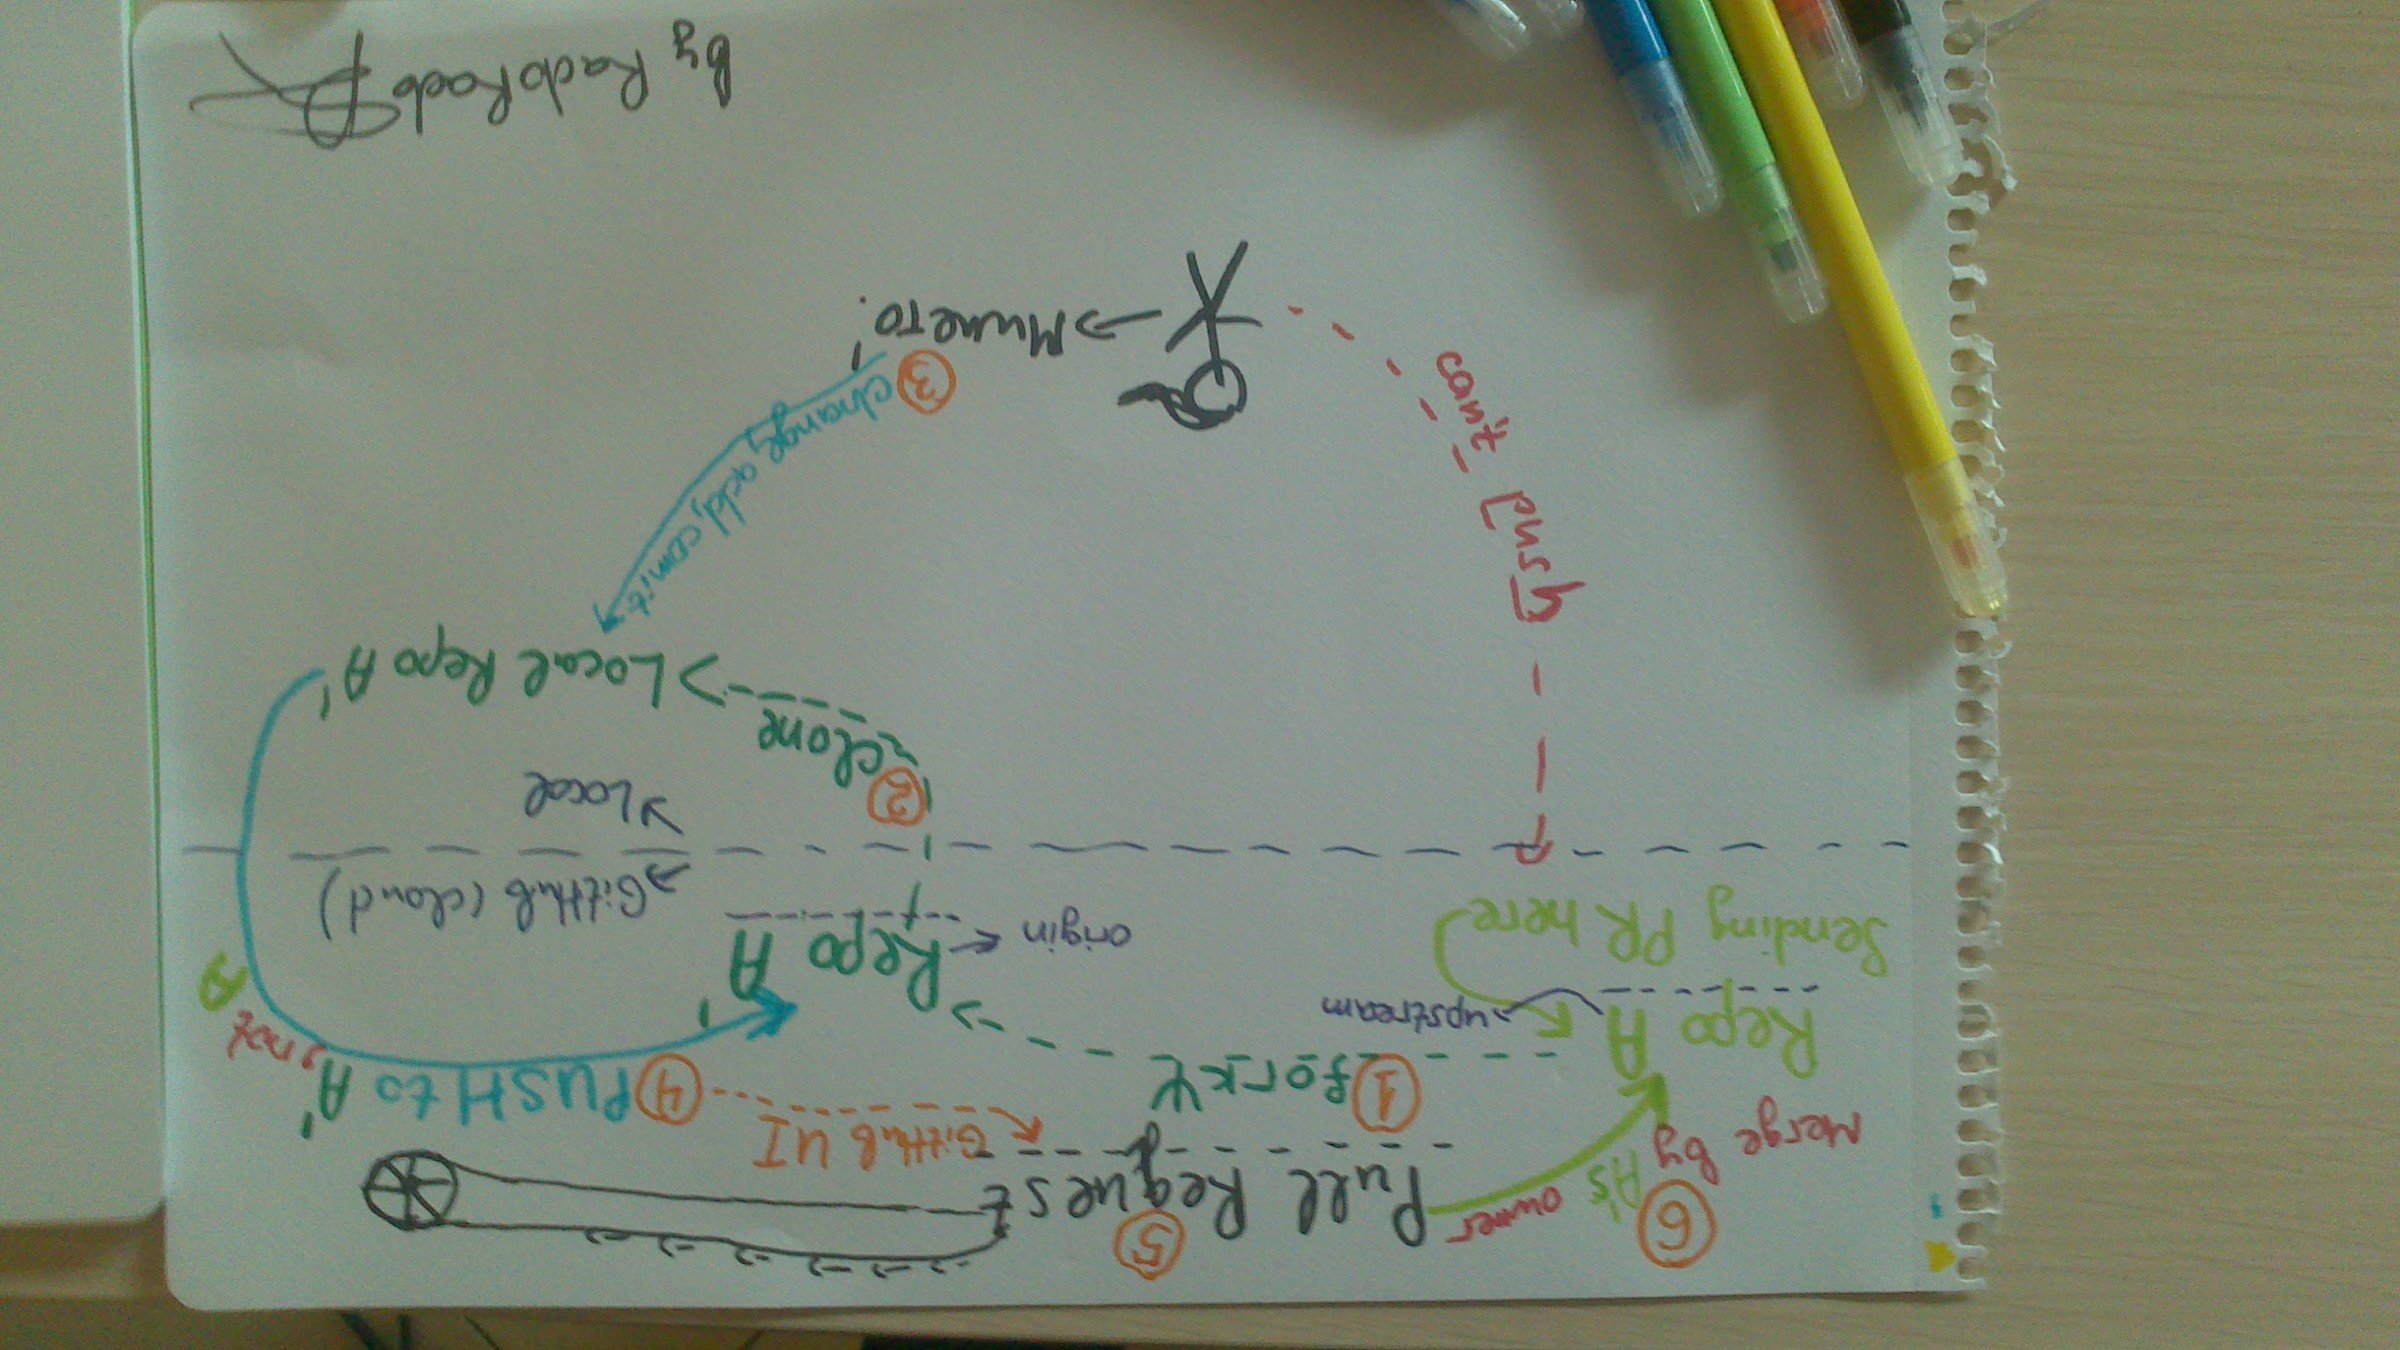 6
5
Merge by A's owner
Pull Request
GitHub UI
1 fork
4 PUSH to A', not A
Repo A
upstream
Repo A'
origin
Sending PR here
GitHub (cloud)
Local
2 clone
Local Repo A'
can't Push
3 change, add, comit
Мишето.
By RadoRado